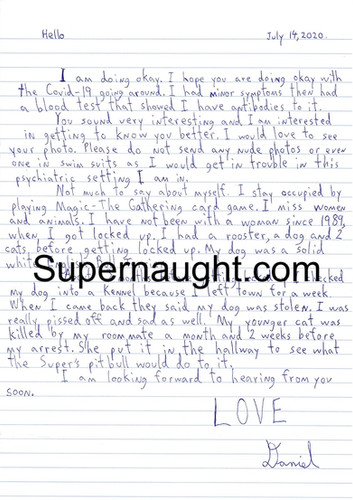 Hello July 14, 2020.
I am doing okay. I hope you are doing okay with
the Covid-19 going around. I had minor symptoms then had
a blood test that showed I have antibodies to it.
You sound very interesting and I am interested
in getting to know you better. I would love to see
your photo. Please do not send any nude photos or even
one in swim suits as I would get in trouble in this
psychiatric setting I am in.
Not much to say about myself. I stay occupied by
playing Magic-The Gathering card game. I miss women
and animals. I have not been with a woman since 1989,
when I got locked up. I had a rooster, a dog and 2
cats, before getting locked up. My dog was a solid
white
Supernaught.com
checked
my dog into a kennel because I left town for a week.
When I came back they said my dog was stolen. I was
really pissed off and sad as well. My younger cat was
killed by my roommate a month and 2 weeks before
my arrest. She put it in the hallway to see what
the Super's pitbull would do to it.
I am looking forward to hearing from you
soon.
LOVE
Daniel